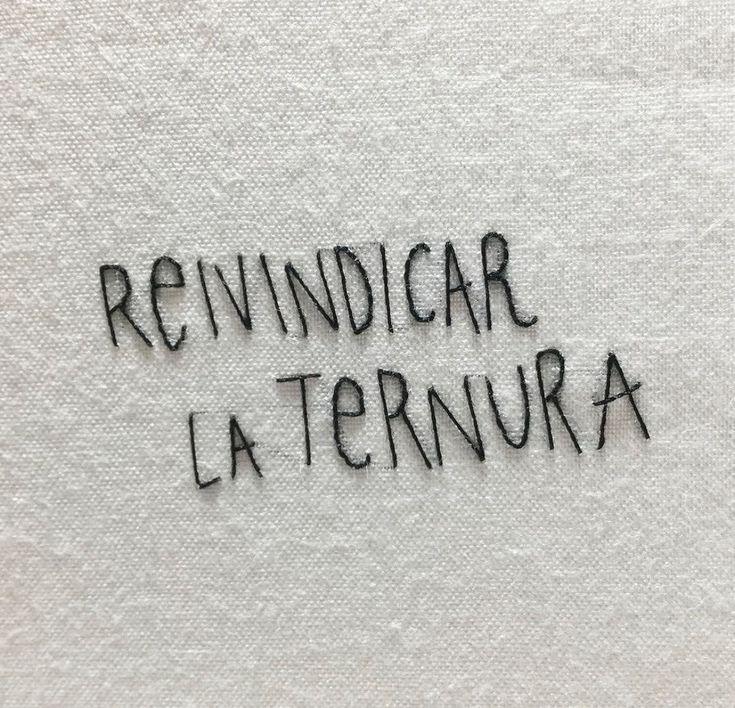 REIVINDICAR
LA TERNURA